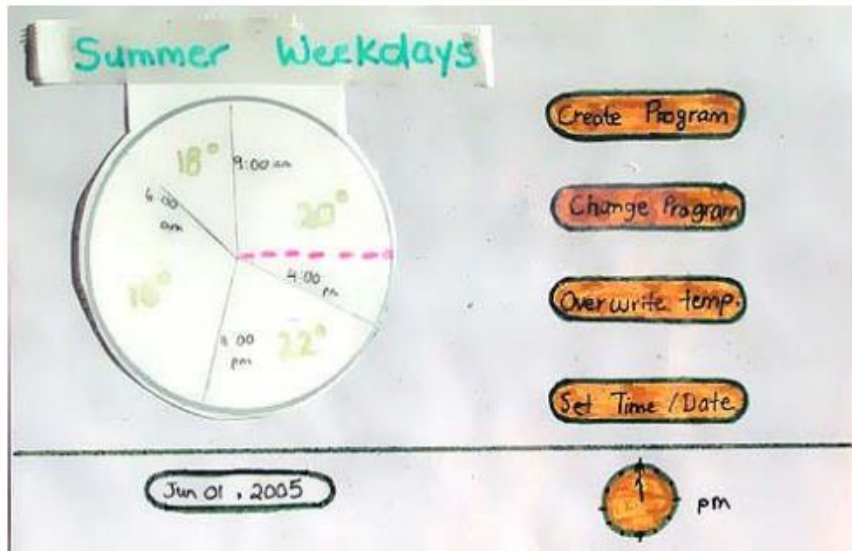 Summer Weekdays
18°
9:00 am
6:00
am
20°
4:00
pm
16°
22°
pm
Create Program
Change Program
Overwrite temp.
Set Time/Date
Jun 01, 2005
pm